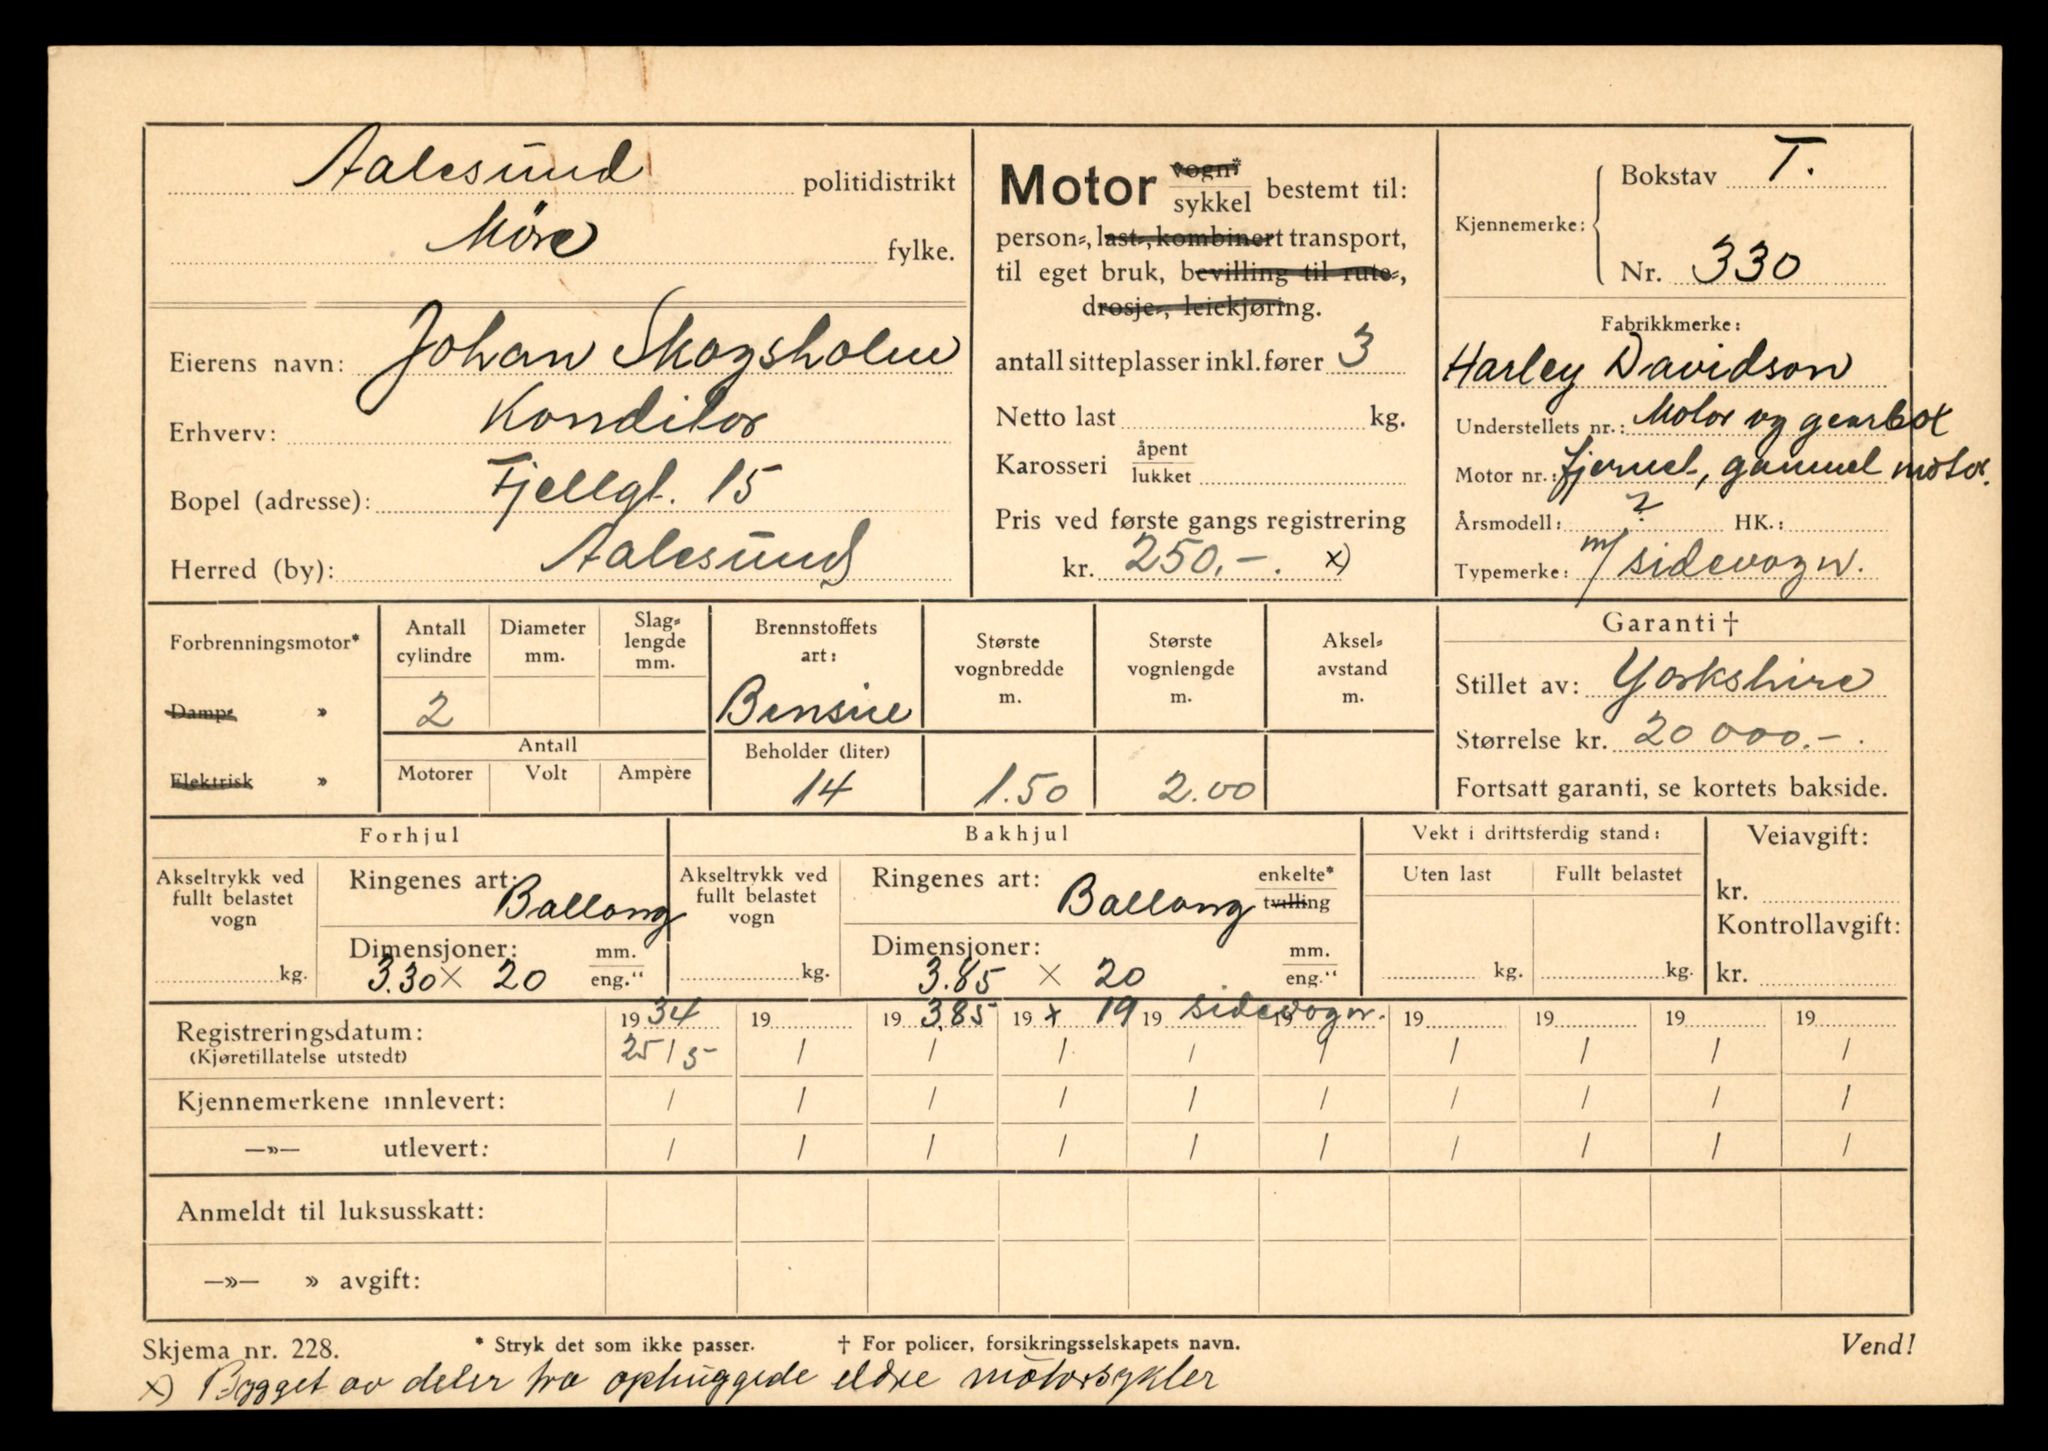 Aalesund politidistrikt
Møre fylke.
Eierens navn: Johan Skogsholm
Erhverv: Konditor
Bopel (adresse): Fjellgt. 15
Herred (by): Aalesund
Motor vogn* sykkel bestemt til:
person-, last-, kombinert transport,
til eget bruk, bevilling til rute-,
drosje-, leiekjøring.
antall sitteplasser inkl. fører 3
Netto last kg.
Karosseri åpent lukket
Pris ved første gangs registrering
kr. 250,-. x)
Kjennemerke: Bokstav T.
Nr. 330
Fabrikkmerke:
Harley Davidson
Understellets nr.: Motor og gearbox
Motor nr.: fjernet, gammel motor.
Årsmodell: ? HK.:
Typemerke: m/ sidevogn.
Forbrenningsmotor*
Damp- »
Elektrisk »
Antall cylindre
2
Diameter mm.
Slag-lengde mm.
Antall
Motorer Volt Ampère
Brennstoffets art:
Bensin
Beholder (liter)
14
Største vognbredde m.
1.50
Største vognlengde m.
2.00
Aksel-avstand m.
Garanti †
Stillet av: Yorkshire
Størrelse kr. 20 000.-.
Fortsatt garanti, se kortets bakside.
Forhjul
Akseltrykk ved fullt belastet vogn
kg.
Ringenes art: Ballong
Dimensjoner: mm. eng."
3.30 x 20
Bakhjul
Akseltrykk ved fullt belastet vogn
kg.
Ringenes art: Ballong enkelte* tvilling
Dimensjoner: mm. eng."
3.85 x 20
3.85 x 19 sidevogn.
Vekt i driftsferdig stand:
Uten last Fullt belastet
kg. kg.
Veiavgift:
kr.
Kontrollavgift:
kr.
Registreringsdatum: 1934 19 19 19 19 19 19 19 19 19
(Kjøretillatelse utstedt) 25/5 / / / / / / / / /
Kjennemerkene innlevert: / / / / / / / / / /
—»— utlevert: / / / / / / / / / /
Anmeldt til luksusskatt:
—»— » avgift:
Skjema nr. 228. * Stryk det som ikke passer. † For policer, forsikringsselskapets navn. Vend!
x) Bygget av deler fra ophuggede eldre motorsykler